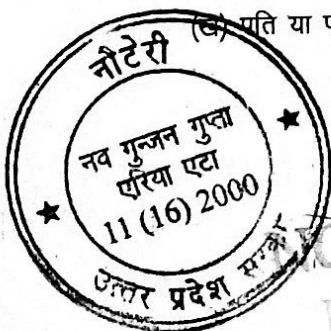 (ख) पति या
नौटेरी
नव गुन्जन गुप्ता
एरिया एटा
11 (16) 2000
उत्तर प्रदेश